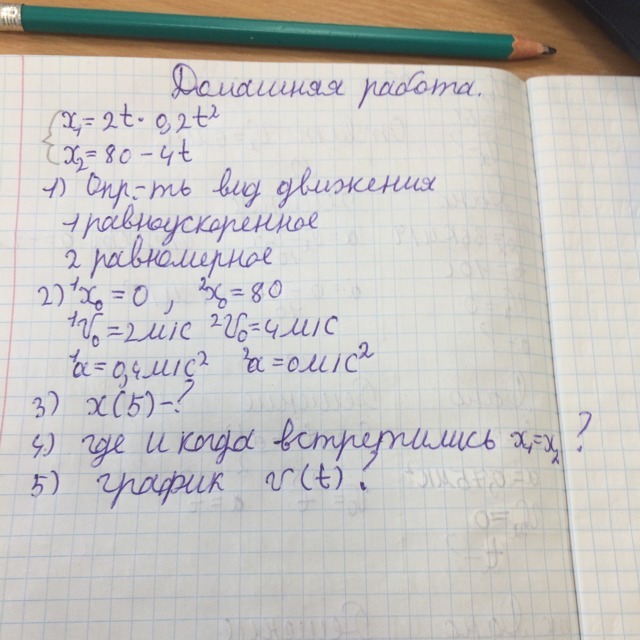 Домашняя работа.
x₁ = 2t · 0,2t²
x₂ = 80 - 4t
1) Опр-ть вид движения
1 равноускоренное
2 равномерное
2) ¹x₀ = 0 , ²x₀ = 80
¹V₀ = 2м/с ²V₀ = 4м/с
¹a = 0,4м/с² ²a = 0м/с²
3) x(5) - ?
4) где и когда встретились x₁=x₂ ?
5) график v(t) ?